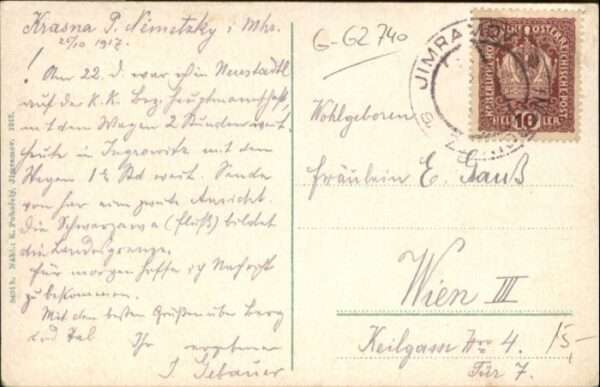 Krasna P. Nĕmetzky i Mhr.
25/10 1917.
!
Am 22. d. war ich in Neustadtl
auf der K. K. Bez. Hauptmannschaft,
mit dem Wagen 2 Stunden weit.
heute in Ingrowitz mit dem
Wagen 1½ Std weit. Sende
von hier eine zweite Ansicht.
Die Schwarzawa (Fluß) bildet
die Landesgrenze.
Für morgen hoffe ich Nachricht
zu bekommen.
Mit den besten Grüßen über Berg
und Tal
Ihr ergebener
J. Gebauer
G-G2 740
JIMRAMOV
KAISERLICHE KÖNIGLICHE ÖSTERREICHISCHE POST
10
HELLER
Wohlgeboren
Fräulein E. Gauß
Wien III
Keilgasse Nro 4.
Tür 7.
15,-
Nákl. K. Pohofelý, Jimramov. 1915.